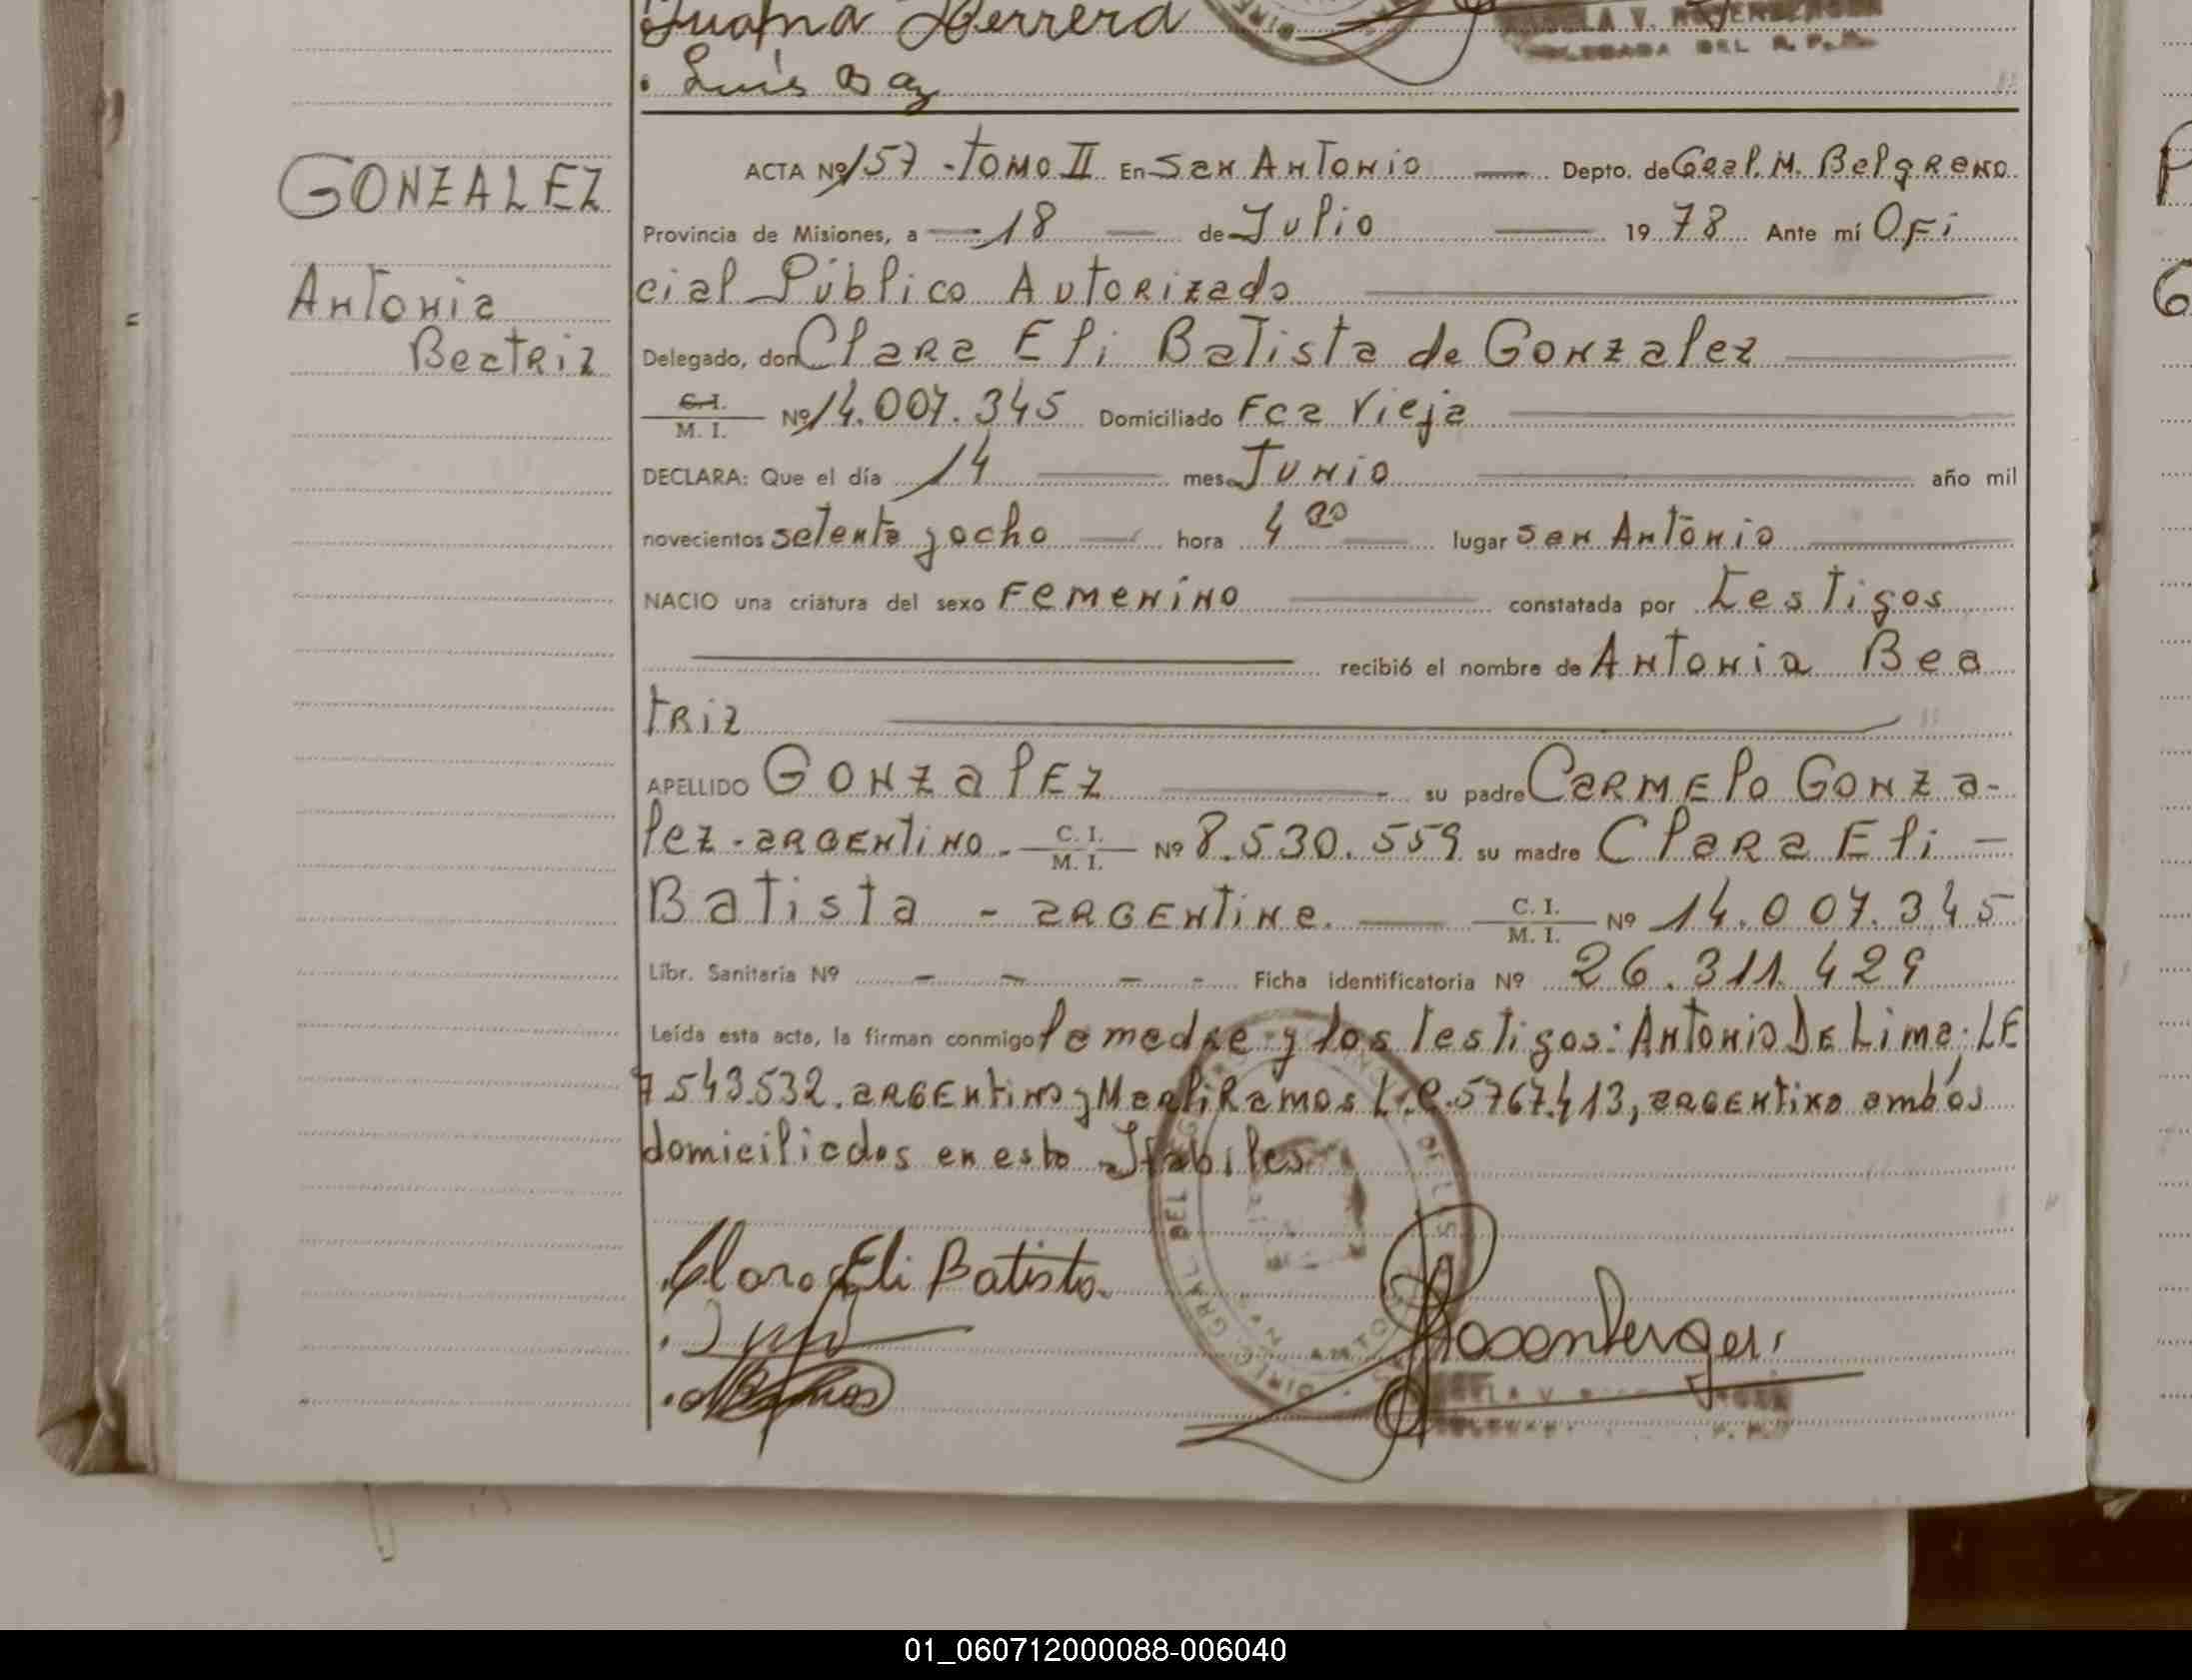 Juana Herrera
Luis
GONZALEZ
Antonia
Beatriz
ACTA Nº 157 - TOMO II En San Antonio — Depto. de Gral. M. Belgrano
Provincia de Misiones, a — 18 — de Julio — 1978 Ante mí Ofi
cial Público Autorizado
Delegado, don Clara Eli Batista de Gonzalez
C.I.
M. I. Nº 14.007.345 Domiciliado Fca Vieja
DECLARA: Que el día 14 — mes Junio — año mil
novecientos setenta y ocho — hora 4 00 — lugar San Antonio
NACIO una criatura del sexo Femenino — constatada por Testigos
recibió el nombre de Antonia Bea
triz
APELLIDO GonzalEz — su padre Carmelo Gonza-
lez - argentino - C. I. M. I. Nº 8.530.559 su madre Clara Eli —
Batista - argentina. — C. I. M. I. Nº 14.007.345
Libr. Sanitaria Nº - - - - Ficha identificatoria Nº 26.311.429
Leída esta acta, la firman conmigo la madre y los testigos: Antonio De Lima. LE
7543.532. argentino y Marli Ramos L.C. 5767.413, argentina ambos
domiciliados en esta Habiles
Clara Eli Batista
Rosenberger
01_060712000088-006040